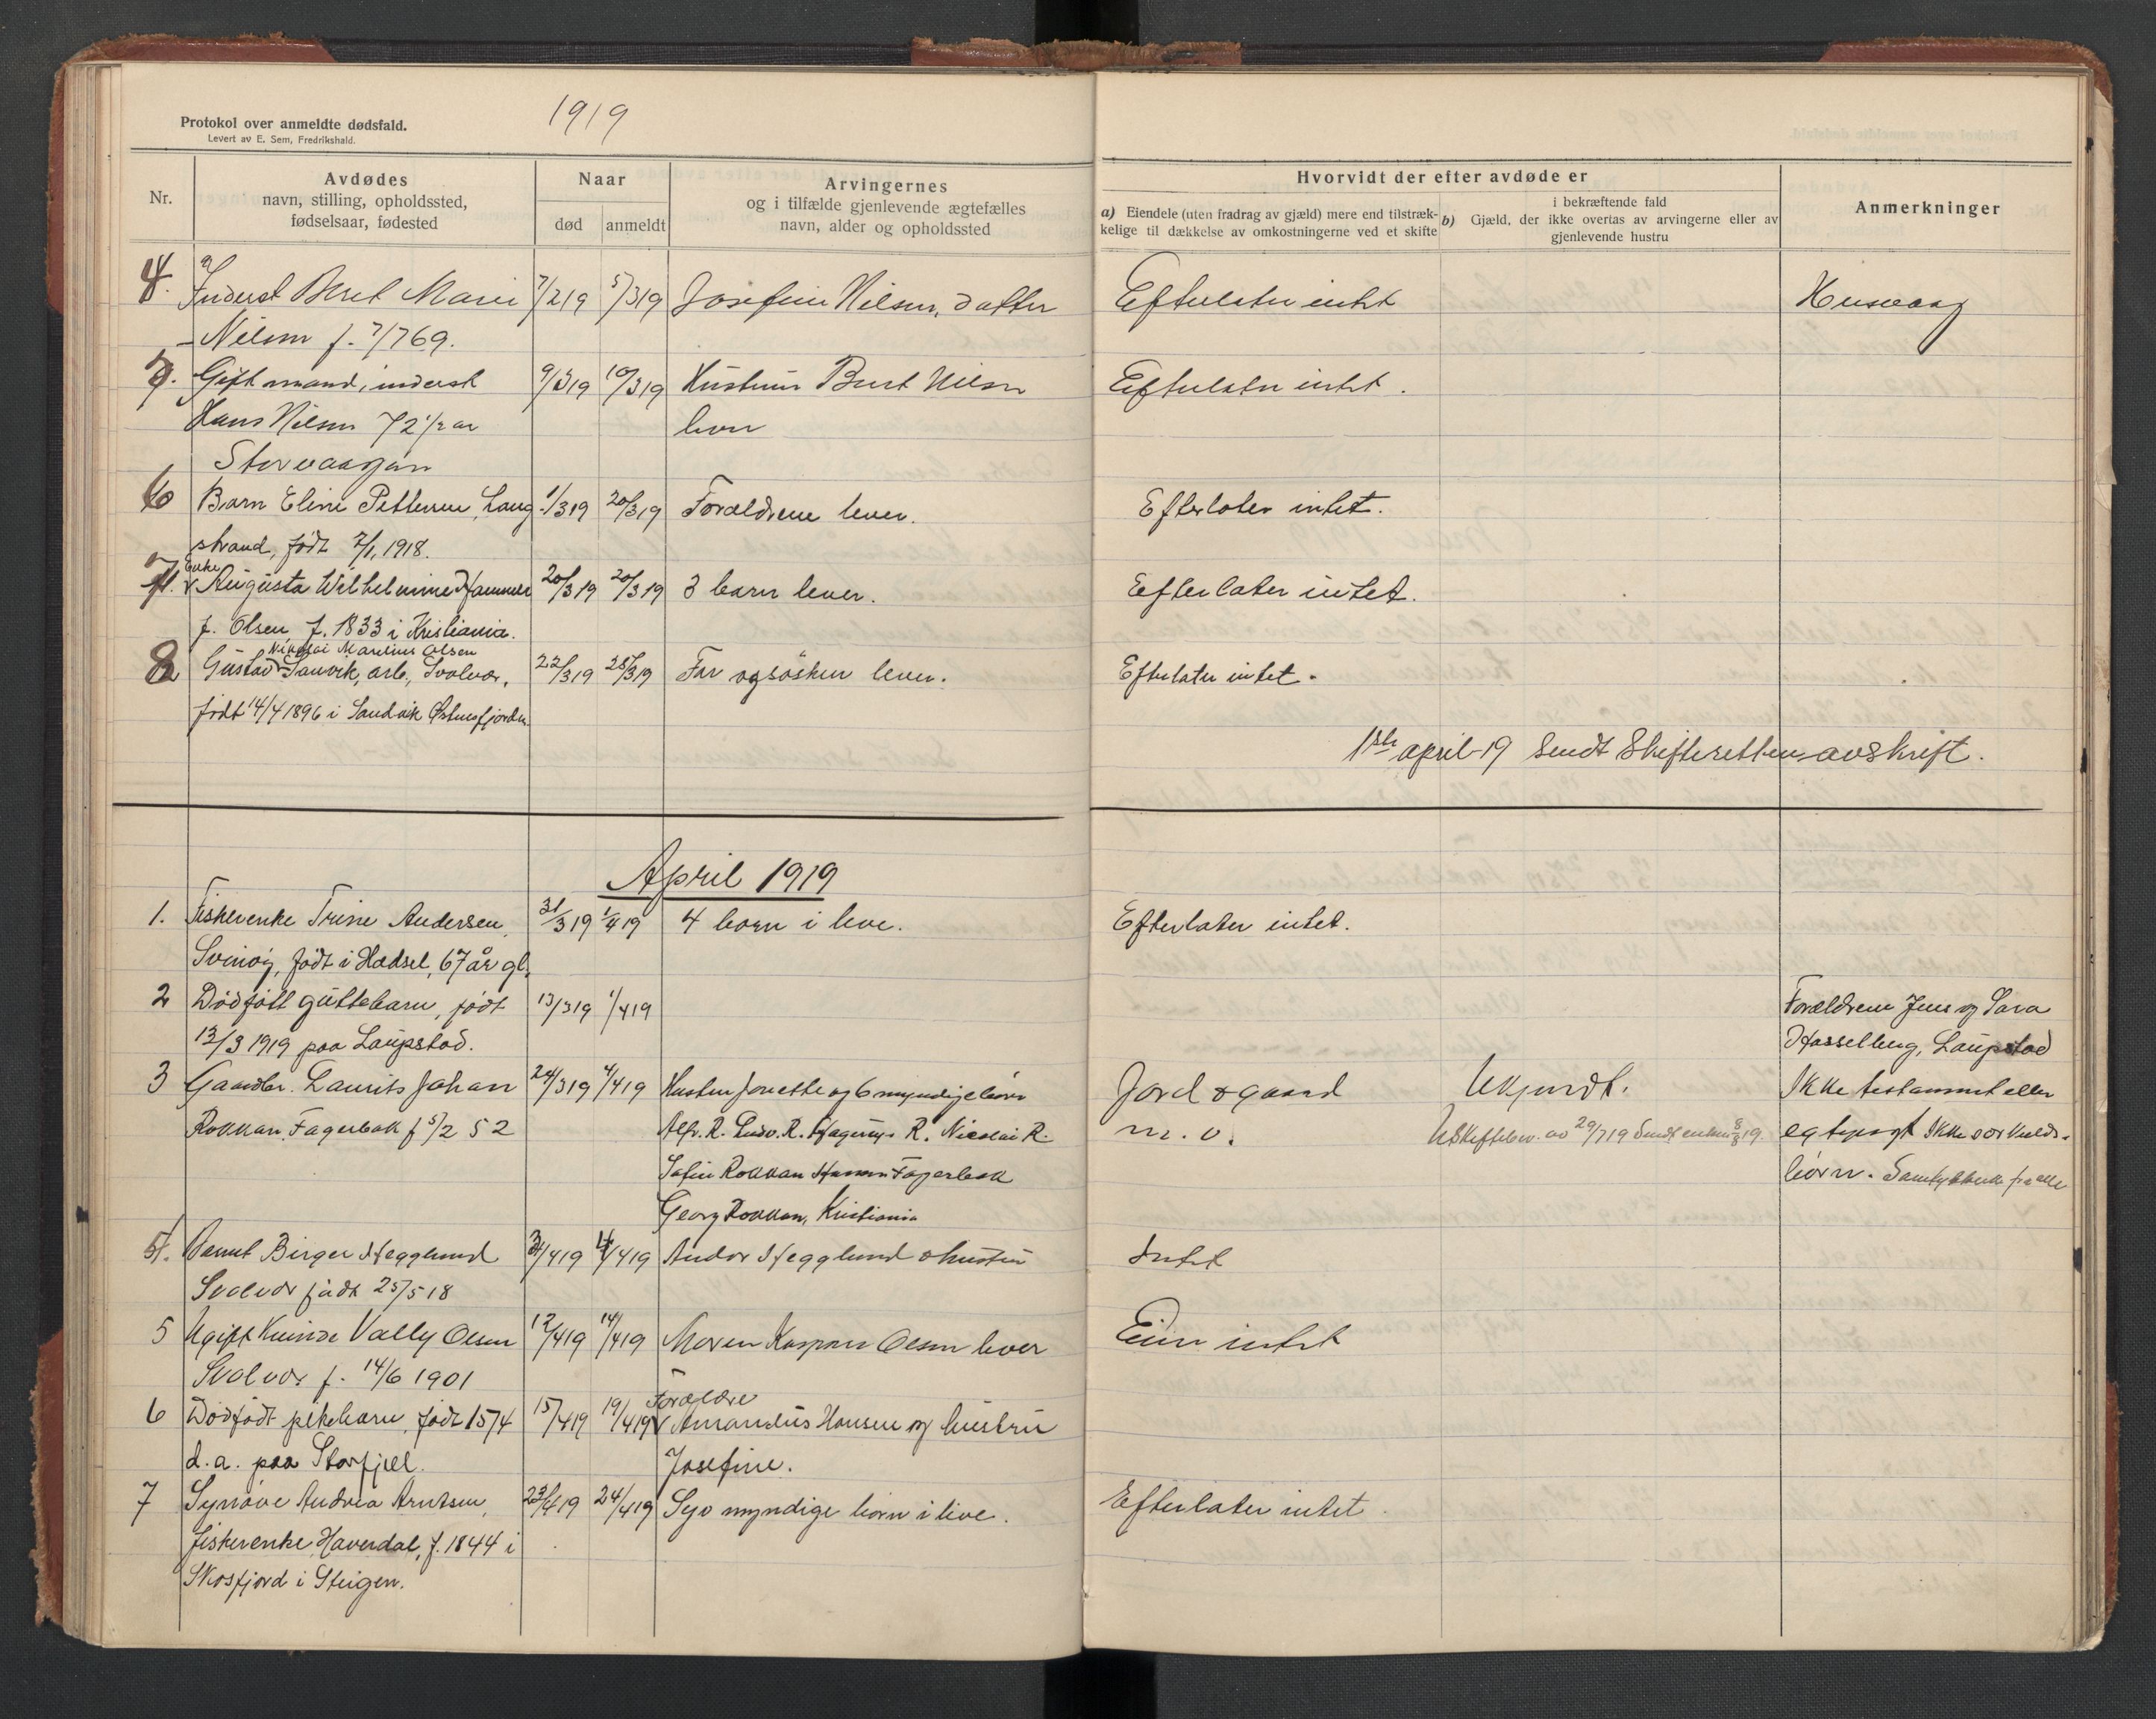 1919
Protokol over anmeldte dødsfald.
Levert av E. Sem, Fredrikshald.
Nr.
Avdødes
navn, stilling, opholdssted,
fødselsaar, fødested
Naar
død anmeldt
Arvingernes
og i tilfælde gjenlevende ægtefælles
navn, alder og opholdssted
Hvorvidt der efter avdøde er
a) Eiendele (uten fradrag av gjæld) mere end tilstræk-
kelige til dækkelse av omkostningerne ved et skifte
i bekræftende fald
b) Gjæld, der ikke overtas av arvingerne eller av
gjenlevende hustru
Anmerkninger
4. Inderst Beret Marie 7/2 19 5/3 19 Josefine Nilsen, datter Efterlater intet
Nilsen f. 7/7 69.
Gift mand, inderst 9/3 19 10/3 19 Hustrun Beret Nilsen Efterlater intet.
Hans Nilsen 72 1/2 aar lever
Storvaagan
6 Barn Eline Pettersen, Laug- 1/3 19 20/3 19 Forældrene lever. Efterlater intet.
strand, født 7/1, 1918.
Enke
7. Augusta Wilhelmine Hammer 20/3 19 20/3 19 3 barn lever. Efterlater intet.
f. Olsen, f. 1833 i Kristiania.
Nikolai Marelius Olsen
8 Gustav Sanvik, arb., Svolvær, 22/3 19 28/3 19 Far og søsken lever. Efterlater intet.
født 14/4 1896 i Sandvik Østnesfjorden.
1ste april-19 sendt Skifteretten avskrift.
April 1919
1. Fiskerenke Trine Andersen, 31/3 19 1/4 19 4 barn i live. Efterlater intet.
Svinøy, født i Hadsel, 67 år gl.
2 Dødfødt guttebarn, født 13/3 19 1/4 19 Forældrene Jens og Sara
13/3 1919 paa Laupstad. Hasselberg, Laupstad
3 Gaardbr. Laurits Johan 24/3 19 4/4 19 Hustru Jonette og 6 myndige børn Jord & gaard Ukjendt. Ikke testamnet eller
Rokkan, Fagerbak f 5/2 52 Alfr. R. Ludv. R. Hagerup R. Nicolai R. m. v. Uskiftebev. av 29/7 19 Sendt enken 8/8 19. egtepagt Ikke sær kulds-
Sofie Rokkan Fagerbak børn. Samtykkende fra alle
Georg Rokkan, Kristiania
4. Barnet Birger Hegglund 4/4 19 Andor Hegglund & hustru Intet
Svolvær født 25/5 18
5 Ugift Kvinde Vally Olsen 12/4 19 14/4 19 Moren Kaspara Olsen lever Eier intet
Svolvær f. 14/6 1901
Forældre
6 Dødfødt pikebarn, født 15/4 15/4 19 19/4 19 Amandus Hansen og hustru
d.a. paa Storfjell. Josefine.
7 Synøve Andrea Arntsen, 23/4 19 24/4 19 Syv myndige børn i live. Efterlater intet.
fiskerenke, Haverdal, f. 1844 i
Skosfjord i Steigen.